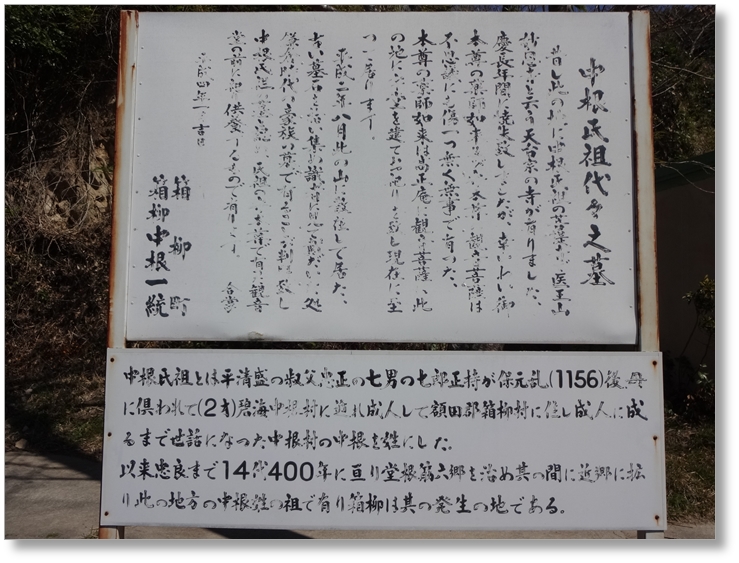 中根氏祖代々之墓
昔し此の地に中根氏の菩提寺医王山
と云う天台宗の寺が有りました、
慶長年間に焼失致しましたが幸い御
本尊の薬師如来と観音菩薩は
不思議にも傷一つ無く無事で有った、
本尊の薬師如来は尚井庵へ観音菩薩は此
の地にお堂を建てお守りを致し現在に至
って居ります。
平成二年八月此の山に散在して居た、
古い墓石を拾い集め識者に見て頂いた処
鎌倉時代の豪族の墓で有ることが判明致し
中根氏
堂の前に 供養するもので有ります。 合掌
平成四年 吉日
箱柳町
箱柳中根一統
中根氏祖とは平清盛の叔父忠正の七男の七郎正持が保元乱(1156)後、母
に倶われて(2才)碧海中根村に逃れ成人して額田郡箱柳村に住し成人に成
るまで世話になった中根村の中根を姓にした。
以来忠良まで14代400年に亘り堂根箱六郷を治め其の間に近郷に拡
り此の地方の中根姓の祖で有り箱柳は其の発生の地である。